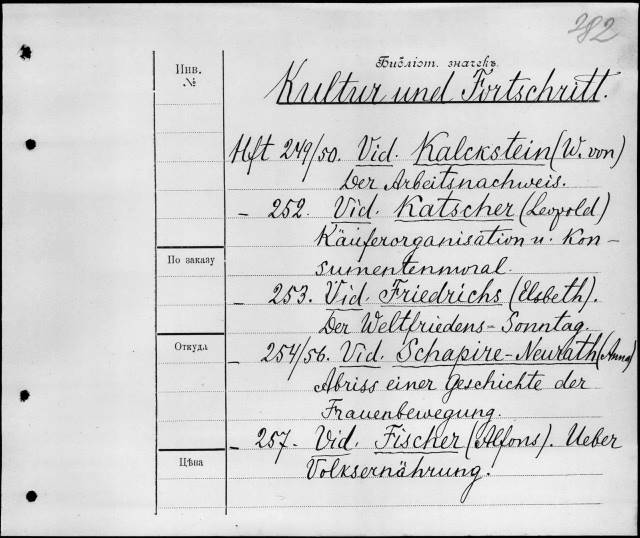 382
Инв.
№
Библіот. значекъ.
Kultur und Fortschritt.
Hft 249/50. Vid. Kalckstein (W. von)
Der Arbeitsnachweis.
– 252. Vid. Katscher (Leopold)
Käuferorganisation u. Kon-
sumentenmoral.
По заказу
– 253. Vid. Friedrichs (Elsbeth).
Der Weltfriedens-Sonntag.
Откуда
– 254/56. Vid. Schapire-Neurath (Anna)
Abriss einer Geschichte der
Frauenbewegung.
– 257. Vid. Fischer (Alfons). Ueber
Цѣна
Volksernährung.